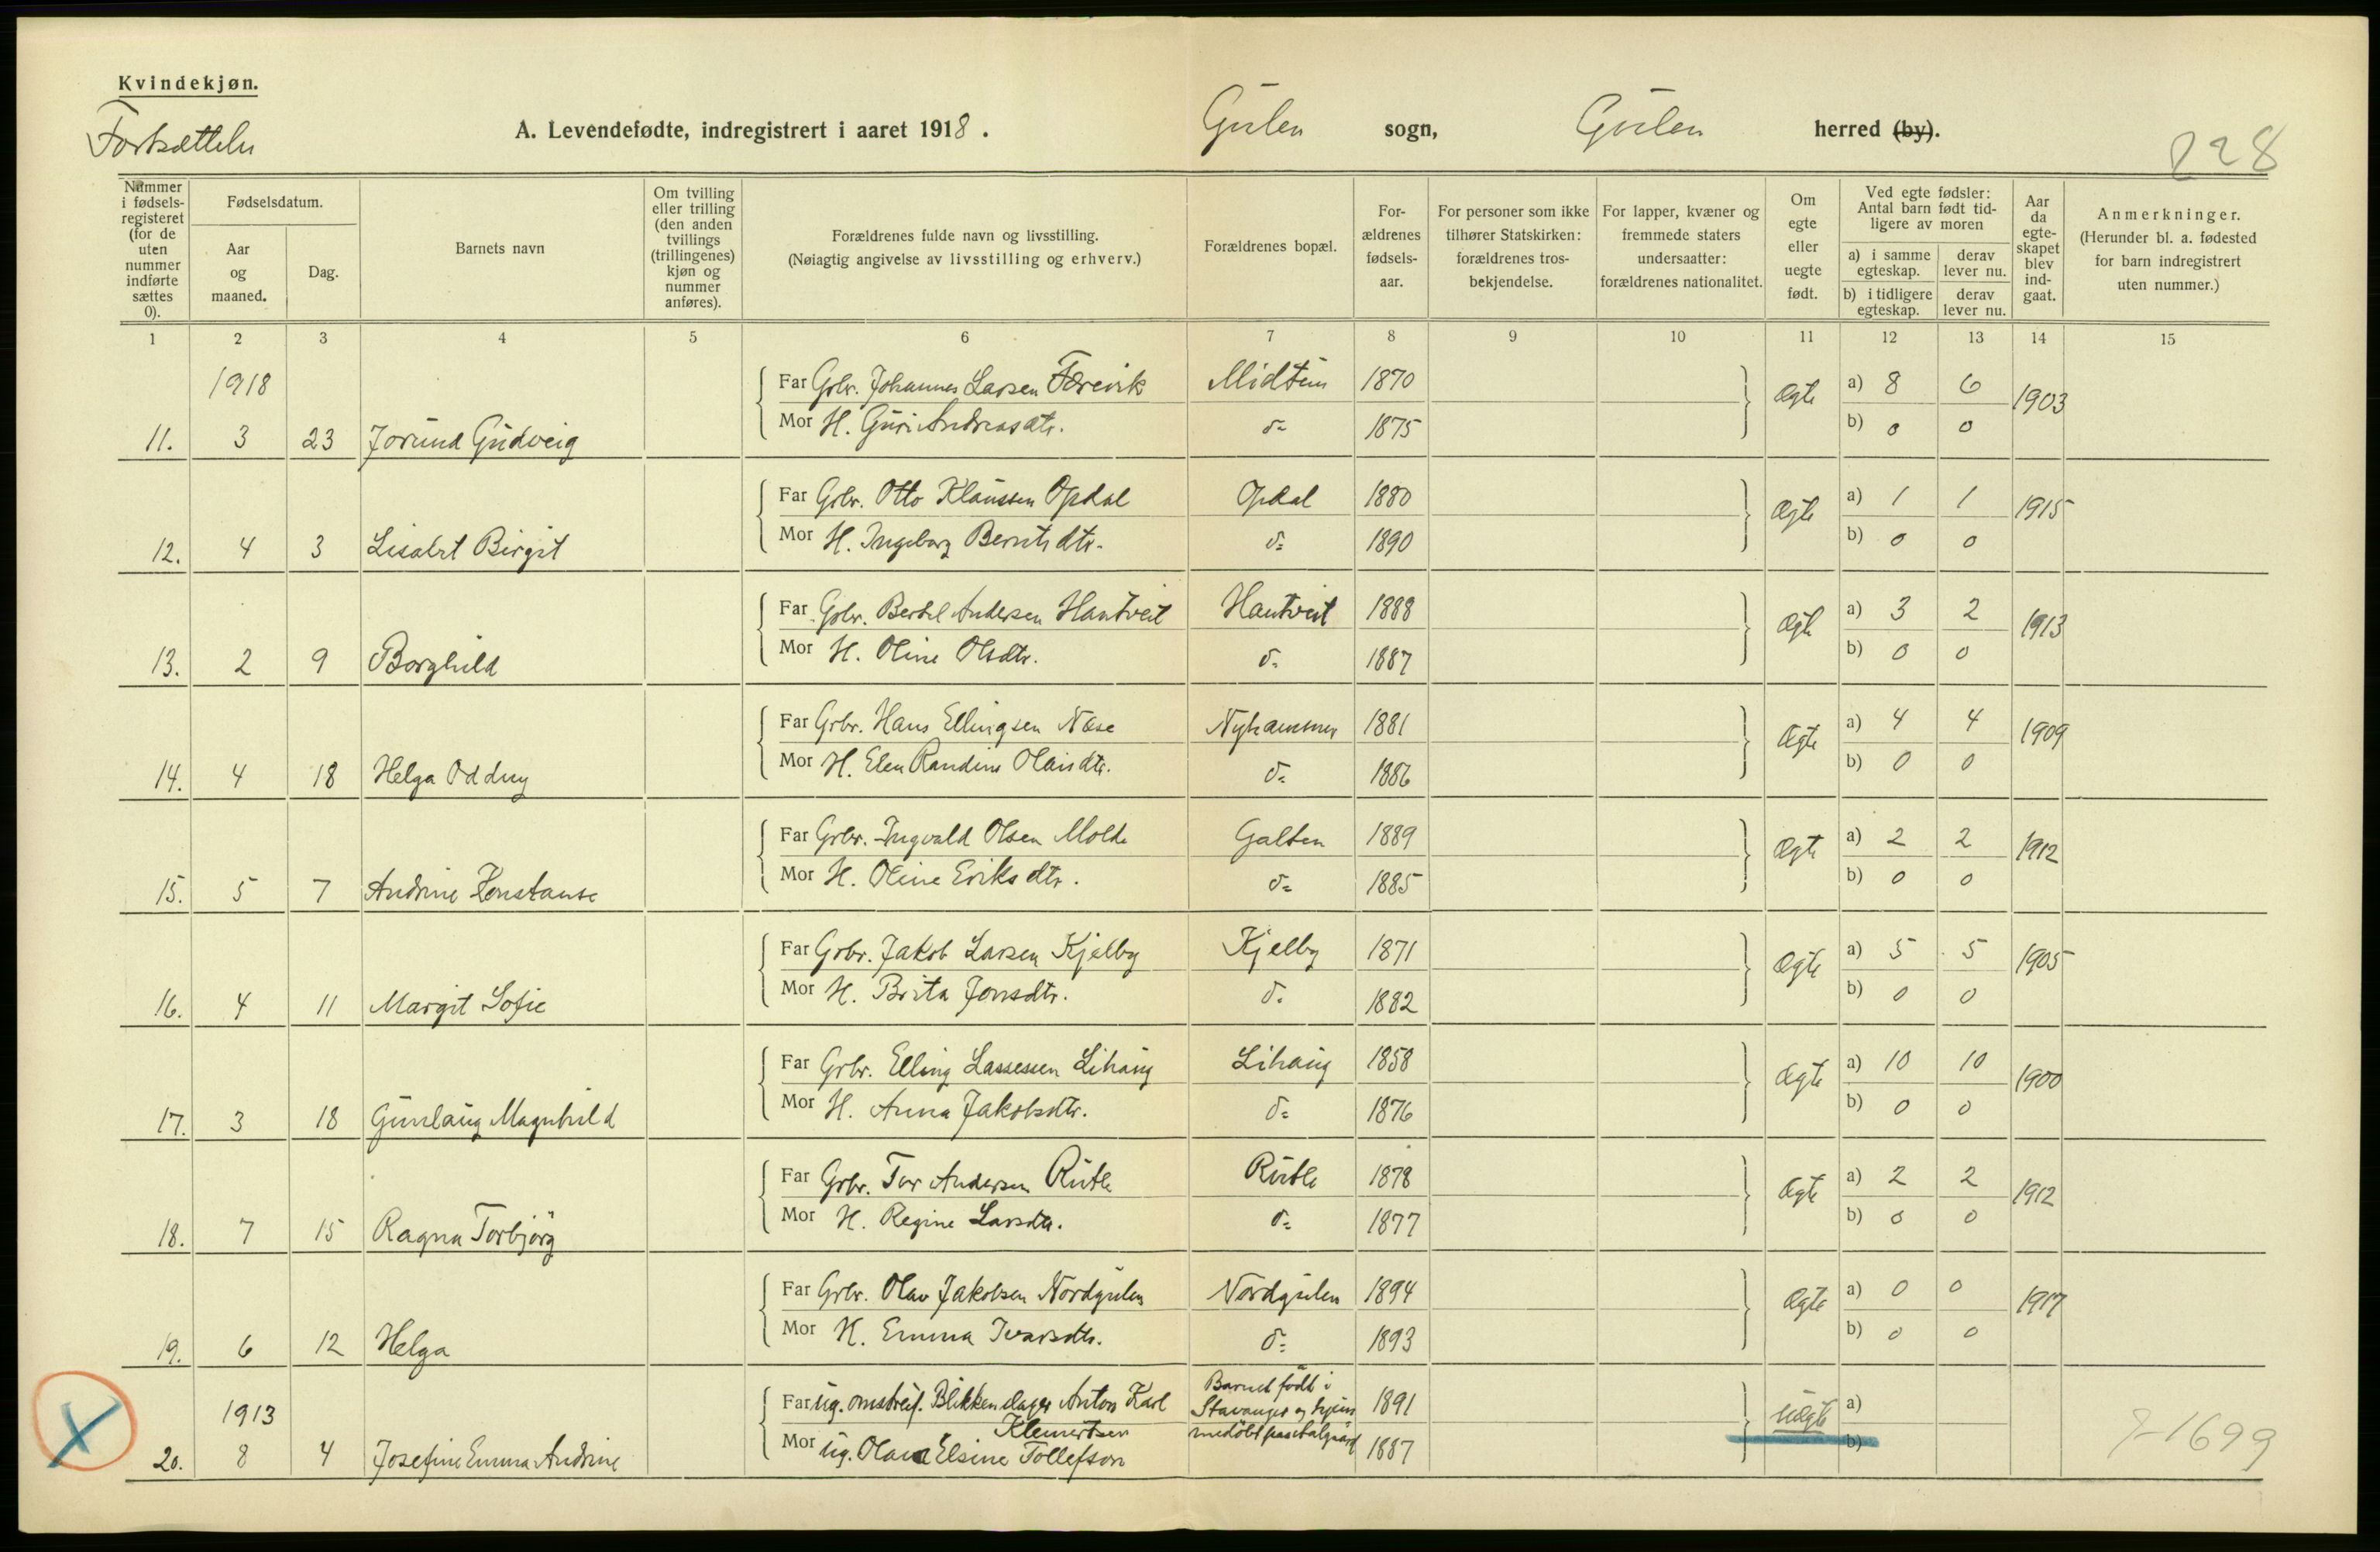 Kvindekjøn.
Fortsættelse
A. Levendefødte, indregistrert i aaret 1918. Gulen sogn, Gulen herred (by).
228
Nummer i fødsels-registeret (for de uten nummer indførte sættes 0).
Fødselsdatum.
Aar og maaned.
Dag.
Barnets navn
Om tvilling eller trilling (den anden tvillings (trillingenes) kjøn og nummer anføres).
Forældrenes fulde navn og livsstilling.
(Nøiagtig angivelse av livsstilling og erhverv.)
Forældrenes bopæl.
For-ældrenes fødsels-aar.
For personer som ikke tilhører Statskirken: forældrenes tros-bekjendelse.
For lapper, kvæner og fremmede staters undersaatter: forældrenes nationalitet.
Om egte eller uegte født.
Ved egte fødsler: Antal barn født tid-ligere av moren
a) i samme egteskap.
derav lever nu.
b) i tidligere egteskap.
derav lever nu.
Aar da egte-skapet blev ind-gaat.
Anmerkninger.
(Herunder bl. a. fødested for barn indregistrert uten nummer.)
1 2 3 4 5 6 7 8 9 10 11 12 13 14 15
1918
Far Grbr. Johannes Larsen Færevik Midtun 1870 Ægte a) 8 6 1903
Mor H. Guri Andreasdtr. do 1875 b) 0 0
11. 3 23 Jorund Gudveig
Far Grbr. Otto Klaussen Opdal Opdal 1880 Ægte a) 1 1 1915
Mor H. Ingeborg Berntsdtr. do 1890 b) 0 0
12. 4 3 Lisabet Birgit
Far Grbr. Bertel Andersen Hantveit Hantveit 1888 Ægte a) 3 2 1913
Mor H. Oline Olsdtr. do 1887 b) 0 0
13. 2 9 Borghild
Far Grbr. Hans Ellingsen Næse Nyhammer 1881 Ægte a) 4 4 1909
Mor H. Elen Randine Olaisdtr. do 1886 b) 0 0
14. 4 18 Helga Oddny
Far Grbr. Ingvald Olsen Molde Galten 1889 Ægte a) 2 2 1912
Mor H. Oline Eriksdtr. do 1885 b) 0 0
15. 5 7 Andrine Konstanse
Far Grbr. Jakob Larsen Kjelby Kjelby 1871 Ægte a) 5 5 1905
Mor H. Brita Jonsdtr. do 1882 b) 0 0
16. 4 11 Margit Sofie
Far Grbr. Elling Lassesen Lihaug Lihaug 1858 Ægte a) 10 10 1900
Mor H. Anna Jakobsdtr. do 1876 b) 0 0
17. 3 18 Gunlaug Magnhild
Far Grbr. Tor Andersen Rutle Rutle 1878 Ægte a) 2 2 1912
Mor H. Regine Larsdtr. do 1877 b) 0 0
18. 7 15 Ragna Torbjörg
Far Grbr. Olav Jakobsen Nordgulen Nordgulen 1894 Ægte a) 0 0 1917
Mor H. Emma Ivarsdtr. do 1893 b) 0 0
19. 6 12 Helga
1913
Far ug. omstreif. Blikkenslager Anton Karl Klemertsen Barnet født i Stavanger og 1891 uægte a)
Mor ug. Olava Elsine Tollefson 1887 b)
20. 8 4 Josefine Emma Andrine
7-1699